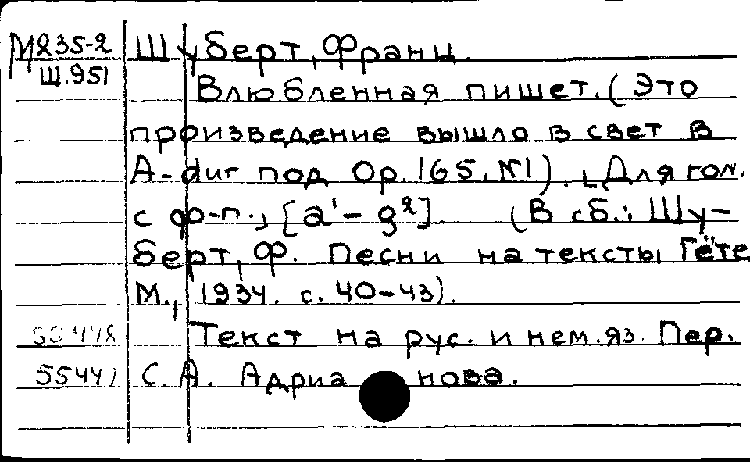 М235-2 Шуберт, Франц.
Ш.951 Влюбленная пишет. (Это
произведение вышло в свет в
A-dur под Op. 165, №1). [Для гол.
с ф-п.], [a¹-g²]. (В сб.: Шу-
берт, Ф. Песни на тексты Гёте
М., 1934. с. 40-43).
Текст на рус. и нем. яз. Пер.
55441 С. А. Адрианова.